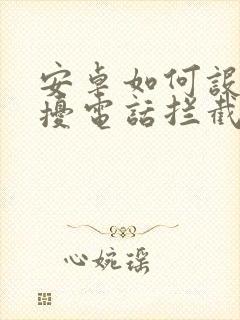 安卓如何設
擾電話拦截
心婉瑶